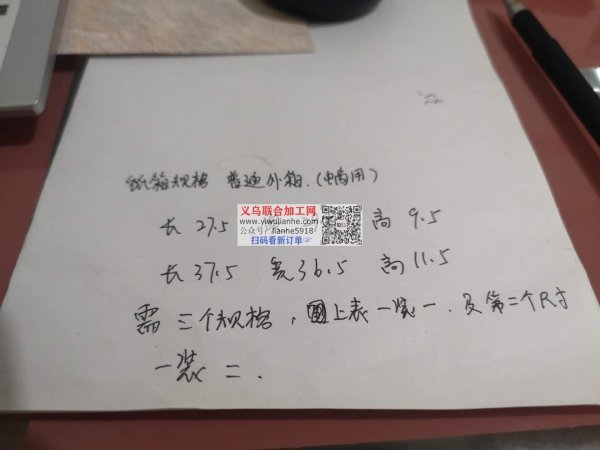 纸箱规格 普通外箱.(电商用)
长27.5 高9.5
义乌联合加工网
www.yiwulianhe.com
公众号:lianhe5918
扫码看新订单👉
长37.5 宽36.5 高11.5
需三个规格,上表一装一.及第二个尺寸
一装二.